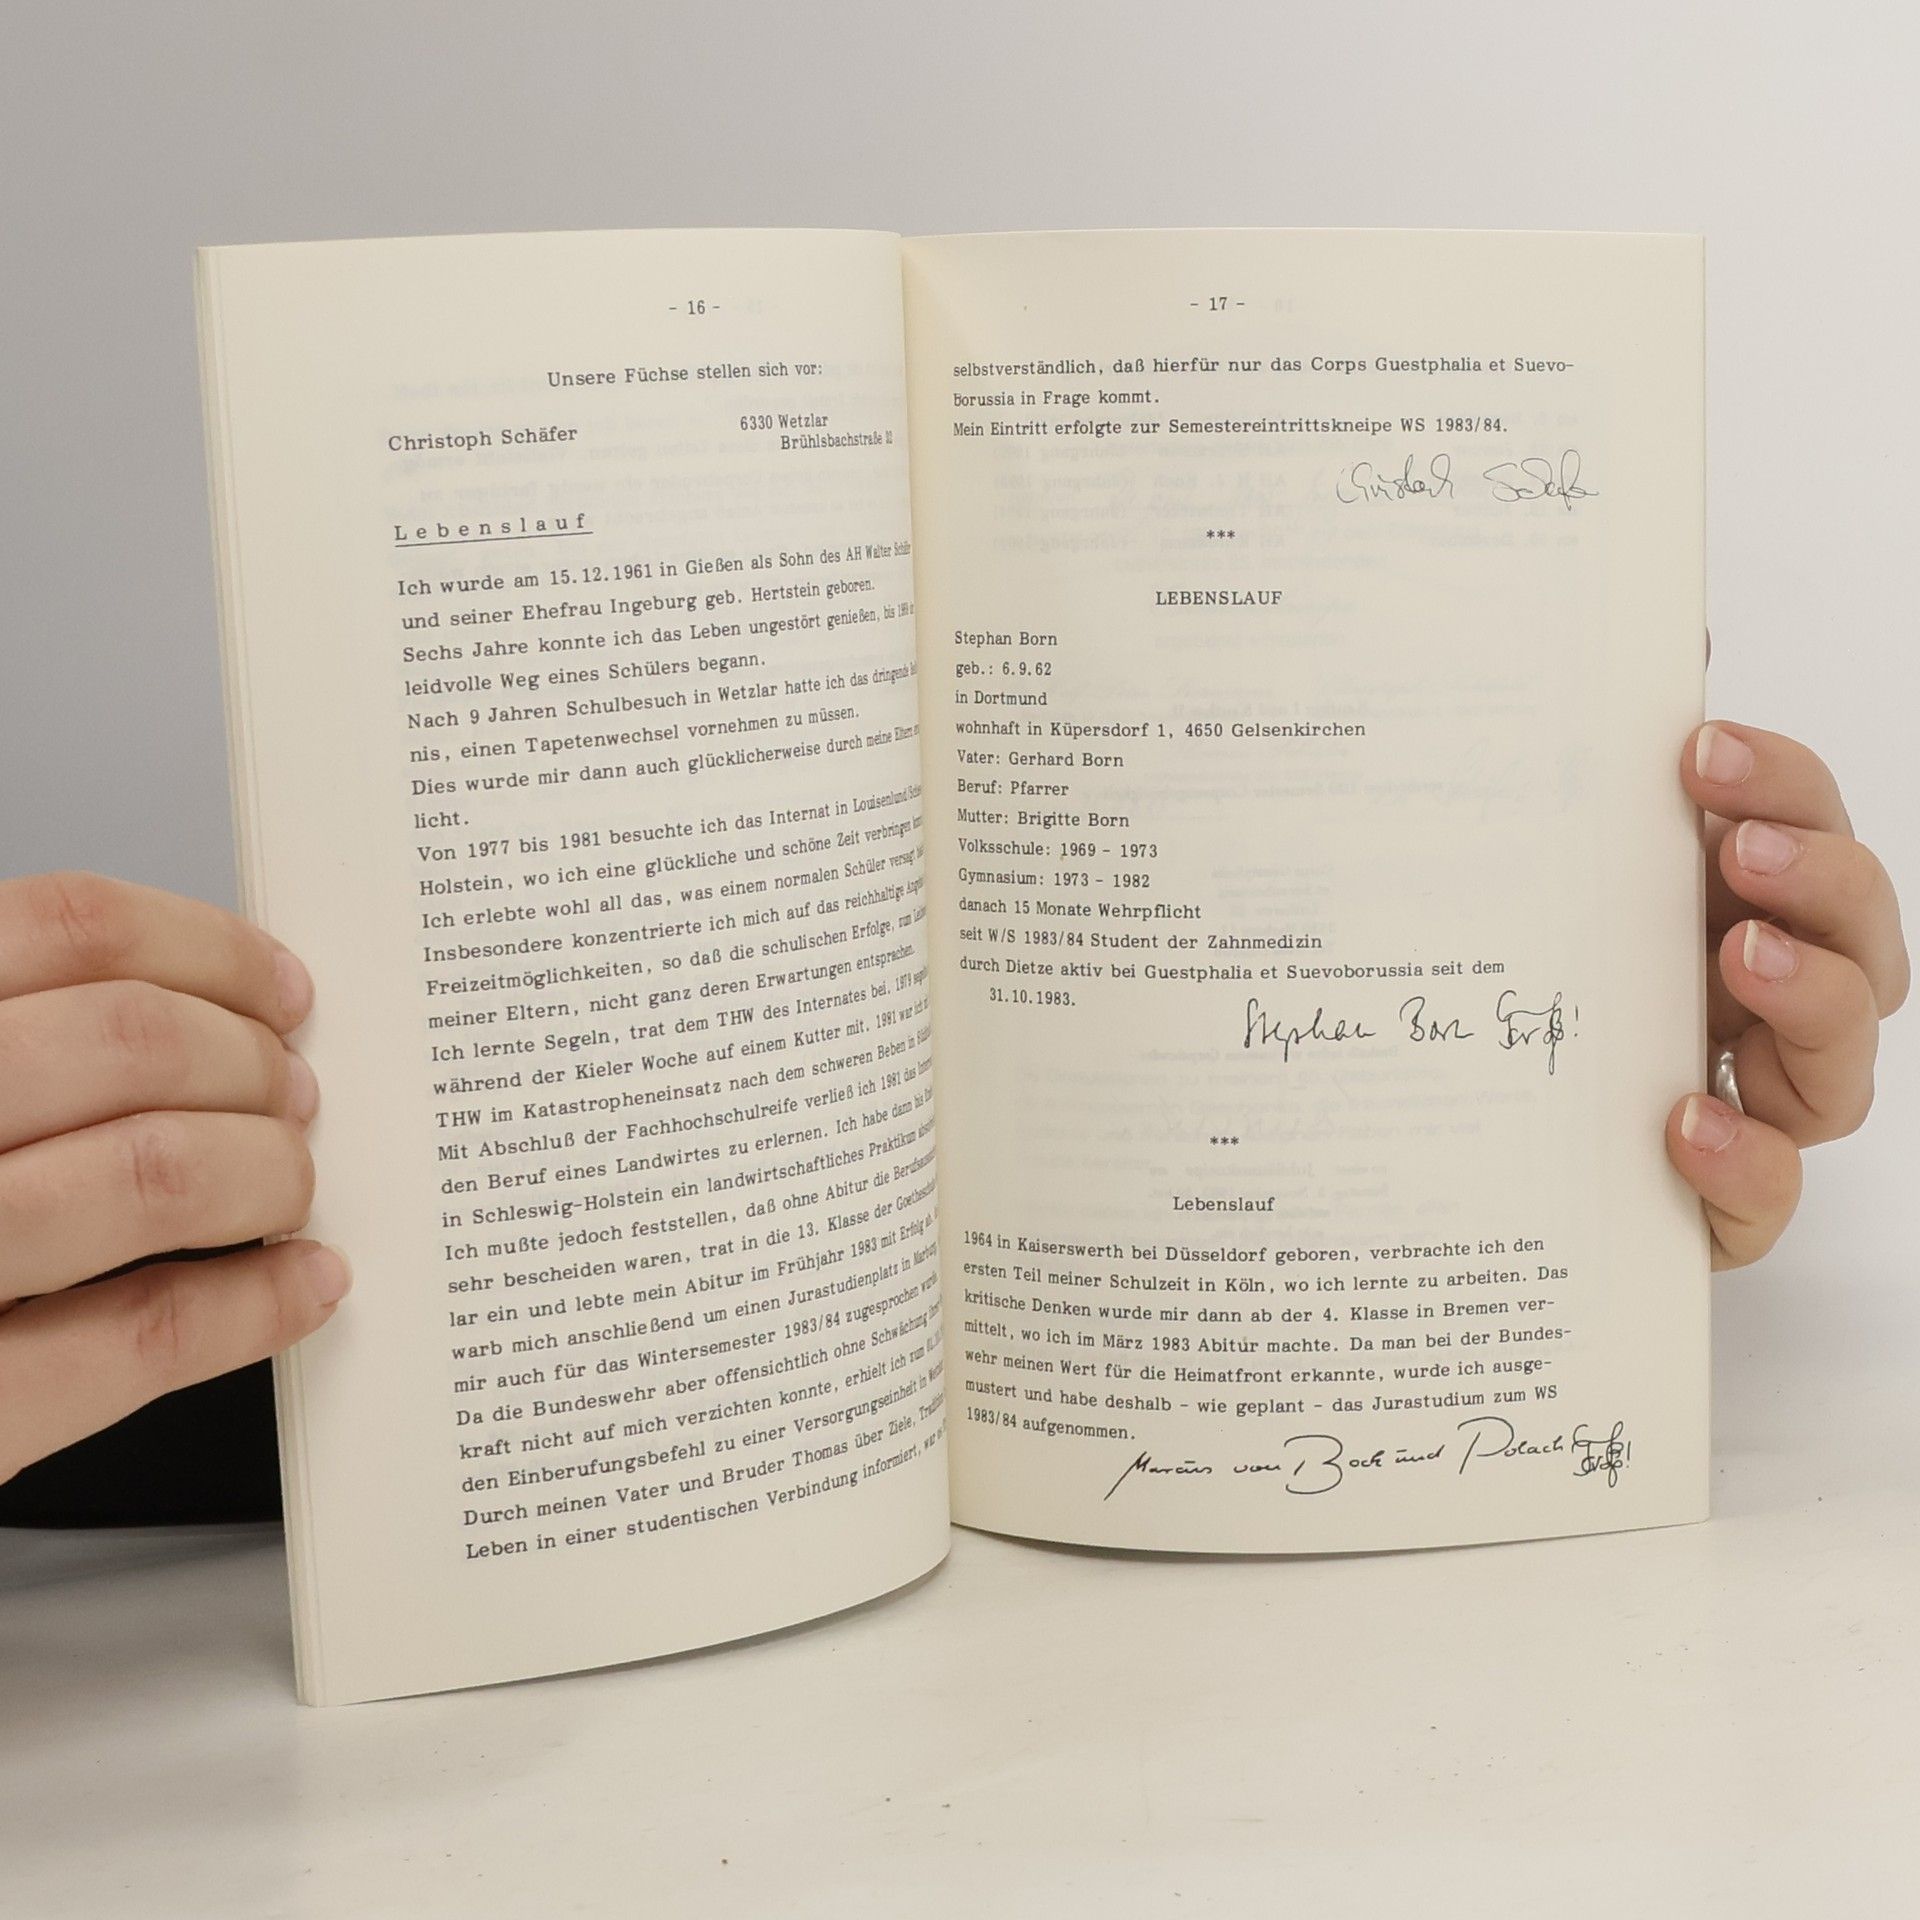 - 16 -
Unsere Füchse stellen sich vor:
Christoph Schäfer
6330 Wetzlar
Brühlsbachstraße
Lebenslauf
Ich wurde am 15.12.1961 in Gießen als Sohn des AH Walter Schäfer
und seiner Ehefrau Ingeburg geb. Hertstein geboren.
Sechs Jahre konnte ich das Leben ungestört genießen, bis
leidvolle Weg eines Schülers begann.
Nach 9 Jahren Schulbesuch in Wetzlar hatte ich das dringende
nis, einen Tapetenwechsel vornehmen zu müssen.
Dies wurde mir dann auch glücklicherweise durch meine Eltern
licht.
Von 1977 bis 1981 besuchte ich das Internat in Louisenlund/
Holstein, wo ich eine glückliche und schöne Zeit verbringen
Ich erlebte wohl all das, was einem normalen Schüler versagt
Insbesondere konzentrierte ich mich auf das reichhaltige
Freizeitmöglichkeiten, so daß die schulischen Erfolge, zum
meiner Eltern, nicht ganz deren Erwartungen entsprachen.
Ich lernte Segeln, trat dem THW des Internates bei. 1979
während der Kieler Woche auf einem Kutter mit. 1981 war ich
THW im Katastropheneinsatz nach dem schweren Beben in
Mit Abschluß der Fachhochschulreife verließ ich 1981 das
den Beruf eines Landwirtes zu erlernen. Ich habe dann bis
in Schleswig-Holstein ein landwirtschaftliches Praktikum
Ich mußte jedoch feststellen, daß ohne Abitur die
sehr bescheiden waren, trat in die 13. Klasse der
lar ein und lebte mein Abitur im Frühjahr 1983 mit Erfolg ab.
warb mich anschließend um einen Jurastudienplatz in Marburg
mir auch für das Wintersemester 1983/84 zugesprochen wurde.
Da die Bundeswehr aber offensichtlich ohne Schwächung ihrer
kraft nicht auf mich verzichten konnte, erhielt ich zum
den Einberufungsbefehl zu einer Versorgungseinheit in
Durch meinen Vater und Bruder Thomas über Ziele,
Leben in einer studentischen Verbindung informiert, war
- 17 -
selbstverständlich, daß hierfür nur das Corps Guestphalia et Suevo-
borussia in Frage kommt.
Mein Eintritt erfolgte zur Semestereintrittskneipe WS 1983/84.
Christoph Schäfer
***
LEBENSLAUF
Stephan Born
geb.: 6.9.62
in Dortmund
wohnhaft in Küpersdorf 1, 4650 Gelsenkirchen
Vater: Gerhard Born
Beruf: Pfarrer
Mutter: Brigitte Born
Volksschule: 1969 - 1973
Gymnasium: 1973 - 1982
danach 15 Monate Wehrpflicht
seit W/S 1983/84 Student der Zahnmedizin
durch Dietze aktiv bei Guestphalia et Suevoborussia seit dem
31.10.1983.
Stephan Born
***
Lebenslauf
1964 in Kaiserswerth bei Düsseldorf geboren, verbrachte ich den
ersten Teil meiner Schulzeit in Köln, wo ich lernte zu arbeiten. Das
kritische Denken wurde mir dann ab der 4. Klasse in Bremen ver-
mittelt, wo ich im März 1983 Abitur machte. Da man bei der Bundes-
wehr meinen Wert für die Heimatfront erkannte, wurde ich ausge-
mustert und habe deshalb - wie geplant - das Jurastudium zum WS
1983/84 aufgenommen.
Marcus von Bock und Polach